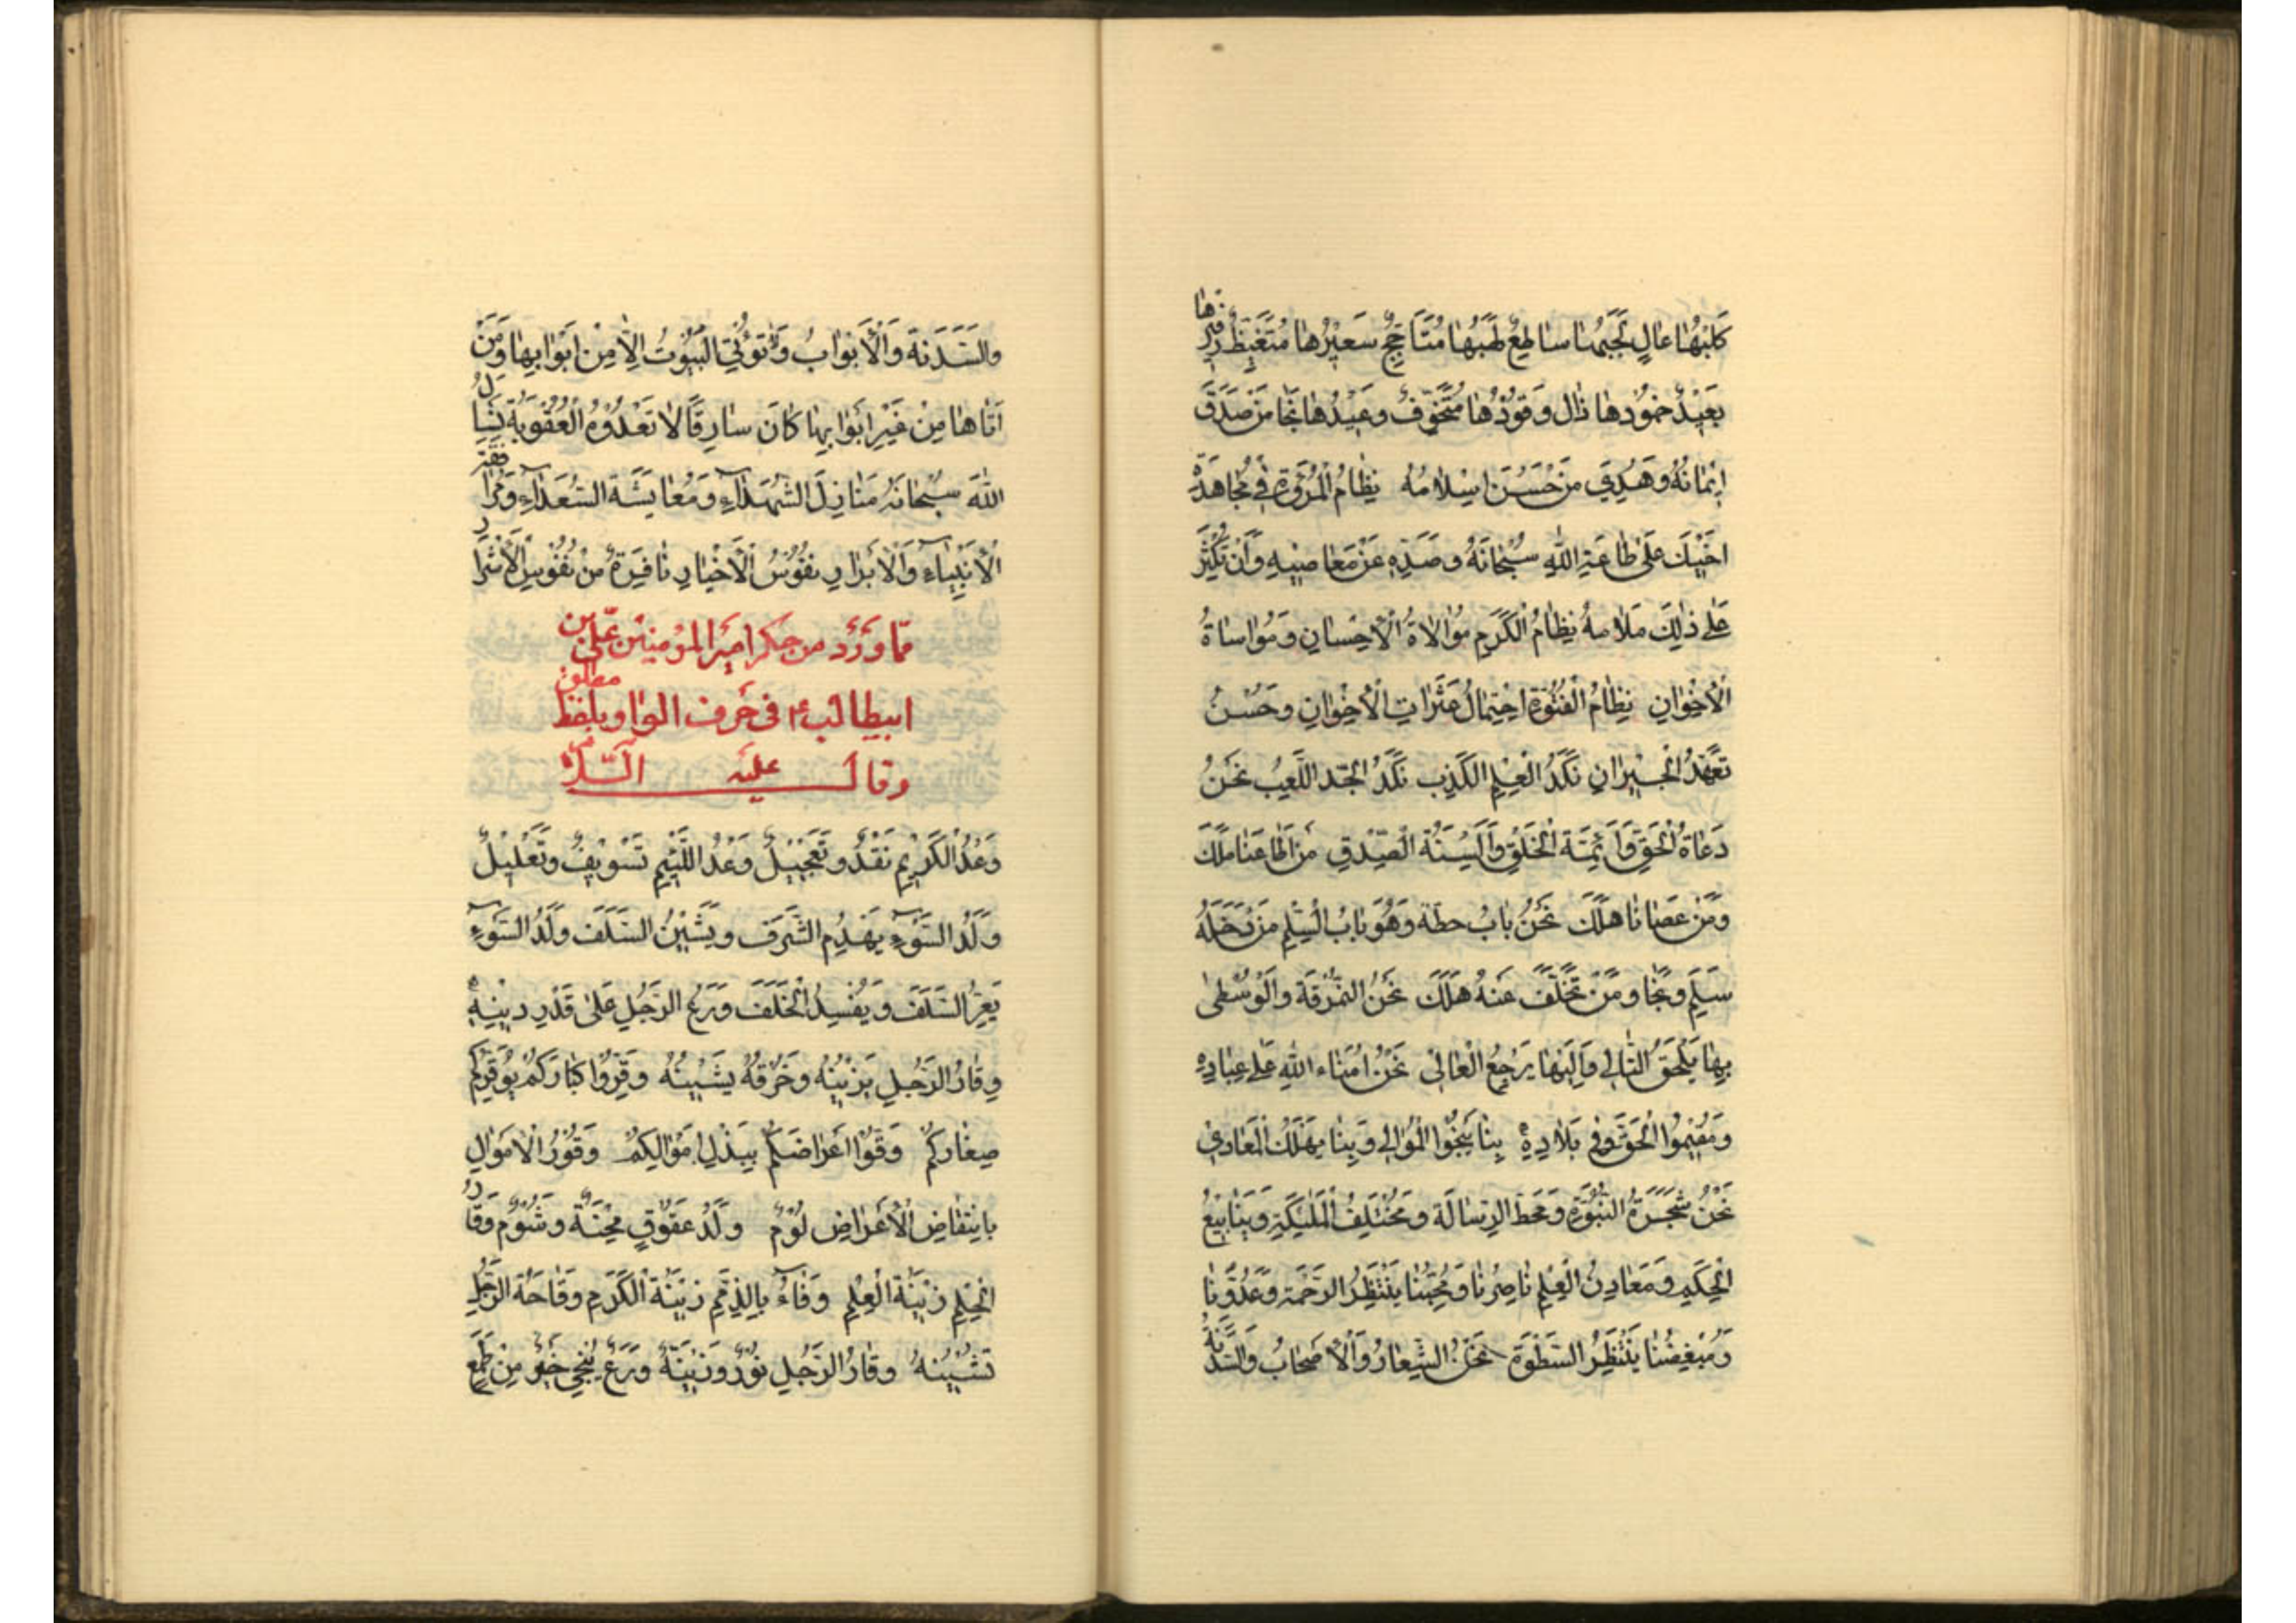 كَلَبُهُا عَالٍ لَجَبُهٰا سٰاطِعٌ لَهَبُهٰا مُتَأَجِّجٌ سَعيْرُهٰا مُتَغَيِّظٌ زَفيْرُهٰا
بَعيْدٌ خمُوْدهٰا ذٰالٍ وَقوُدُهٰا مُتَخَوِّفٌ وَعيْدُهٰا نَجٰا مَنْ صَدَقَ
ايْمٰانُهُ وَهُدِيَ مَنْ حَسُنَ اِسْلٰامُهُ نِظٰامُ الْمُرُوَّةِ فيْ مُجٰاهَدَةِ
اَخيْكَ عَلىٰ طٰاعَةِ اللّٰهِ سُبْحٰانَهُ وصَدِّهِ عَنْ مَعٰاصيْهِ وَاَنْ تُكَثِّرَ
عَلىٰ ذٰلِكَ مَلٰامَهُ نِظٰامُ الْكَرَمِ مُوٰالٰاةُ الْاِحْسٰانِ وَمُوٰاسٰاةُ
الْاِخْوٰانِ نِظٰامُ الْفُتُوَّةِ احْتِمٰالُ عَثَرٰاتِ الْاِخْوٰانِ وحُسْنُ
تَعَهُّدُ الْجيْرٰانِ نَكَدُ الْعِلْمِ الْكَذِبِ نَكَدُ الْجِدِّ اللَّعِبُ نَحْنُ
دُعٰاةُ الْحَقِّ وَاَئِمَّةُ الْخَلْقِ وَاَلْسِنَةُ الْصِّدْقِ مَنْ اَطٰاعَنٰا مَلَكَ
وَمَنْ عَصٰانٰا هَلَكَ نَحْنُ بٰابُ حِطَّة وَهُوَ بٰابُ الْسِّلْمِ مَنْ دَخَلَهُ
سَلِمَ ونَجٰا وَمَنْ تَخَلَّفَ عَنْهُ هَلَكَ نَحْنُ النُّمْرُقَة والْوُسْطىٰ
بِهٰا يَلْحَقُ التّٰالي وَاِلَيْهٰا يَرْجِعُ الْغٰاليْ نَحْنُ اُمَنٰاء اللّٰهِ عَلىٰ عِبٰادِهِ
وَمُقيْمُوا الْحَقِّ في بِلٰادِهِ بِنٰا يَنْجُوا الْمُوٰالي وَبِنٰا يَهْلَكُ الْمعٰادي
نَحْنُ شَجَرَةُ النُّبُوَّةِ وَمَحَطُّ الرِّسٰالَة وَمُخْتَلَفُ الْمَلٰئِكَةِ وَيَنٰابيْعُ
الْحِكَمِ وَمَعٰادِنُ الْعِلْمِ نٰاصِرُنٰا وَمُحِبُّنٰا يَنْتَظِرُ الرَّحْمَةَ وَعَدُوُّنٰا
وَمُبْغِضُنٰا يَنْتَظِرُ السَّطْوَةَ نَحْنُ الشِّعٰارُ وَالْاَصْحٰابُ وَالسَّدَنَةُ
والسَّدَنَة وَالْاَبْوٰابُ وَلٰا تُؤْتَى الْبُيُوْتُ اِلّٰا مِنْ اَبْوٰابِهٰا وَمَنْ
اَتٰاهٰا مِنْ غَيْرِ اَبْوٰابِهٰا كٰانَ سٰارِقًا لٰا تَعْدُوْهُ الْعُقُوْبَةُ نَسْأَلُ
اللّٰهَ سُبْحٰانَهُ مَنٰازِلَ الشُّهَدٰاءِ وَمُعٰايَشَةَ السُّعَدٰاءِ وَمُرٰافَقَةَ
الْاَنْبِيٰاءِ وَالْاَبْرٰارِ نفُوْسُ الْاَخْيٰارِ نٰافِرَةٌ مِنْ نُفُوْسِ الْاَشْرٰارِ
ممّا وَرَدَ من حِكَم اَمير المؤمنيْن عَليّ بن
ابيطالب ؏ في حَرف الواو بلفظ مطلق
وقالـــ عليه السّلام
وَعْدُ الْكَرِيْمِ نَقْدٌ وتَعْجِيْلٌ وَعْدُ اللَّئِيْمِ تَسْوِيْفٌ وتَعْلِيْلٌ
وَلَدُ السَّوْءِ يَهْدِمُ الشَّرَفَ وَيَشيْنُ السَّلَفَ وَلَدُ السَّوْءِ
يَعُرُّ السَّلَفَ وَيُفْسِدُ الْخَلَفَ وَرَعُ الرَّجُلِ عَلىٰ قَدْرِ ديْنِهِ
وِقٰارُ الرَّجُلِ يَزيْنُهُ وخُرْقُهُ يَشيْنُهُ وَقِّرُوا كِبٰارَكُمْ يُوَقِّرْكُمْ
صِغٰارُكُمْ وَقُوْا اَعْرٰاضَكُمْ بِبَذْلِ اَمْوٰالِكُمْ وَفُوْرُ الْاَمْوٰالِ
بِانْتِقٰاضِ الْاَعْرٰاضِ لُؤْمٌ وَلَدٌ عَقُوْقٍ مِحْنَةٌ وشُوْمٌ وَقٰارُ
الْحِلْمِ زيْنَةُ الْعِلْمِ وَفٰاءٌ بِالذِّمَمِ زيْنَةُ الْكَرَمِ وَقٰاحَةُ الرَّجُلِ
تَشيْنُهُ وقٰارُ الرَّجُلِ نُوْرٌ وزيْنَةٌ وَرَعٌ يُنْجي خَيْرٌ مِنْ طَمَعٍ